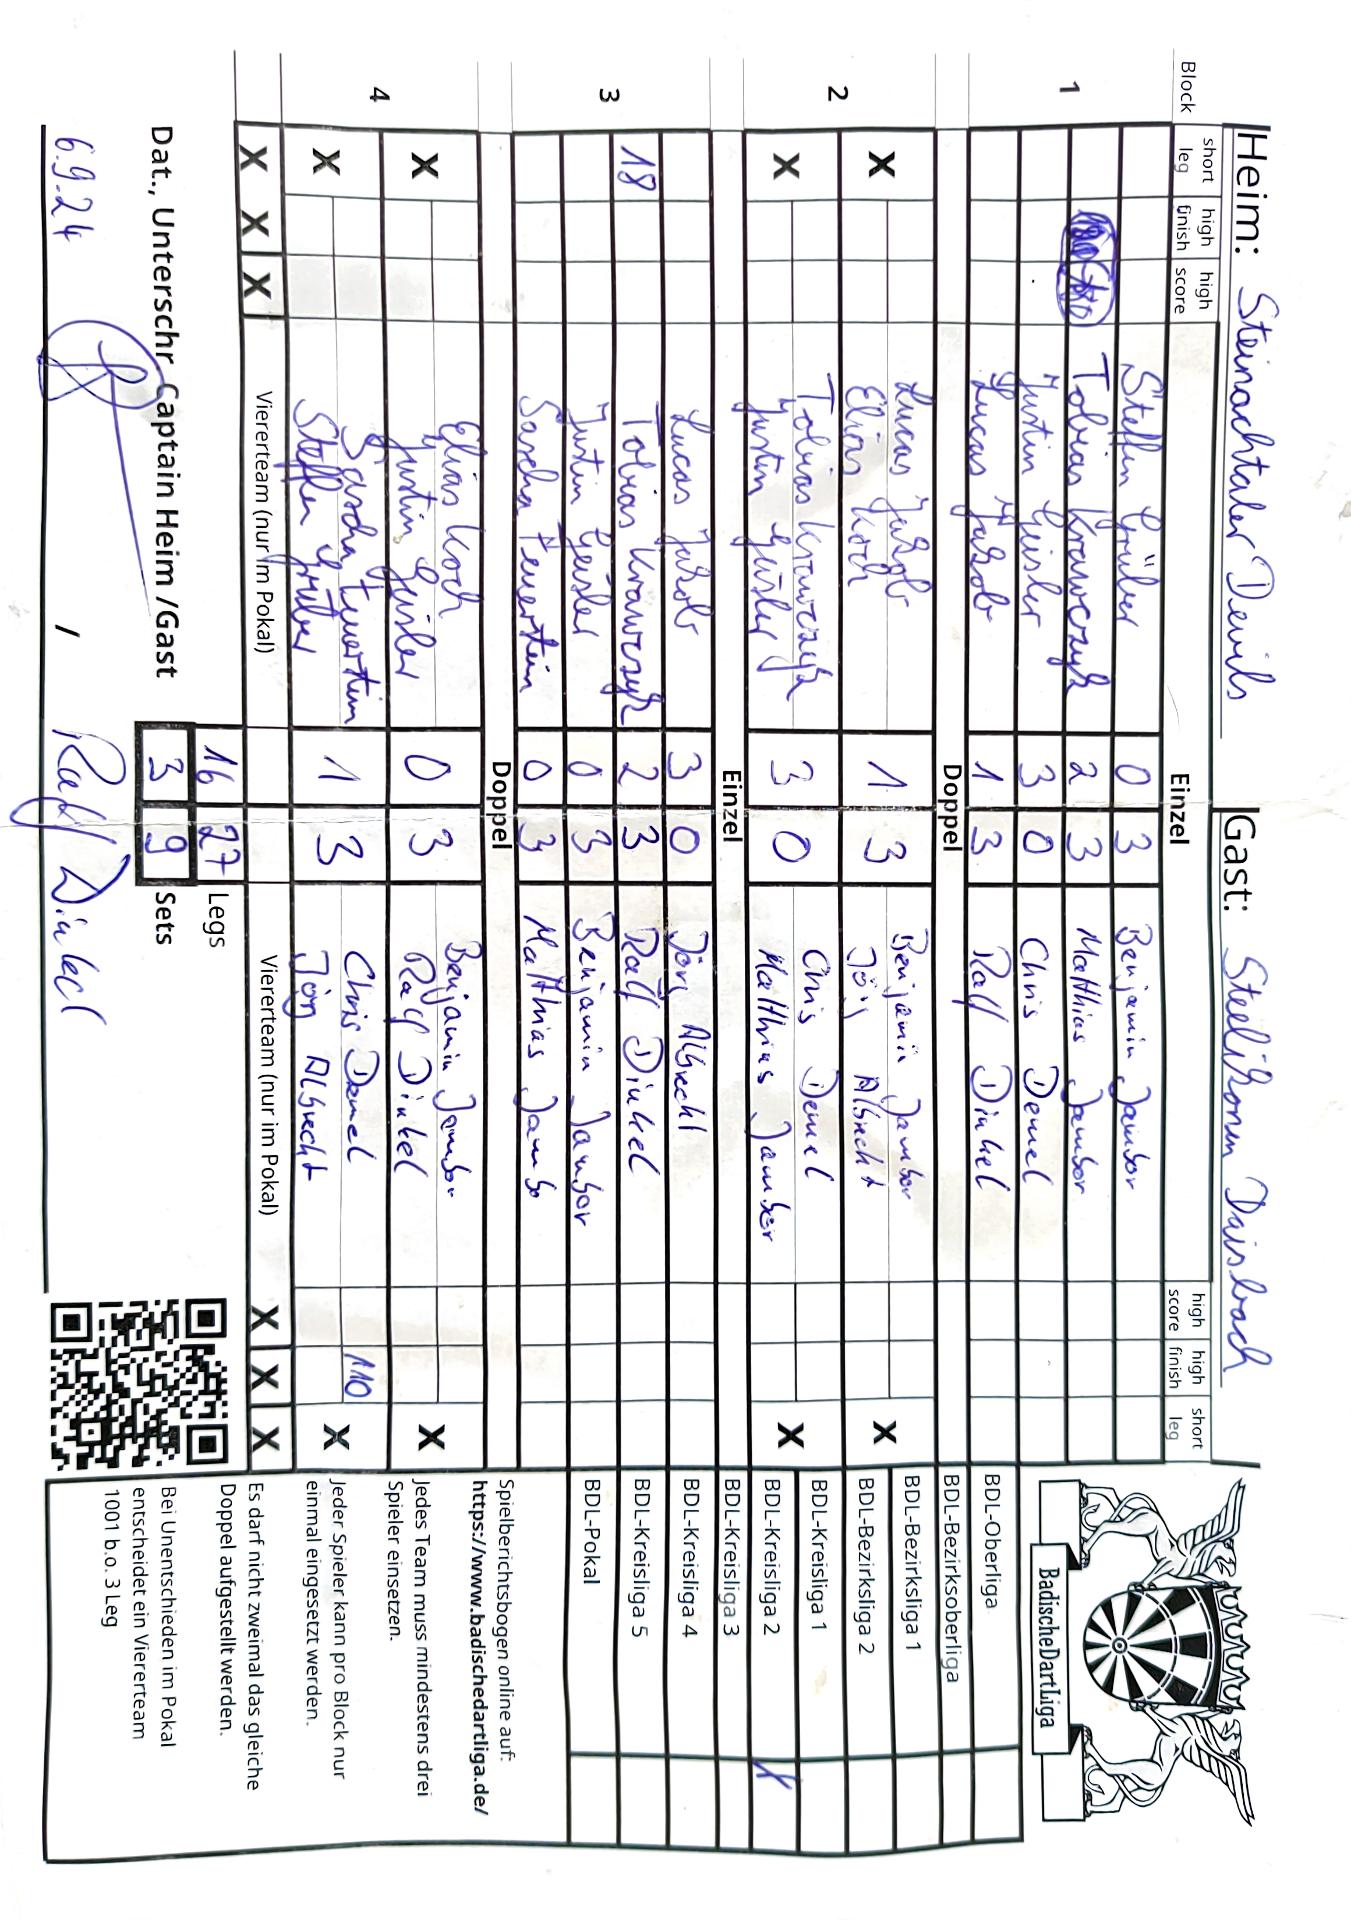 Heim: Steinachtaler Devils Gast: Steelihonen Daisbach
Block short leg high finish high score Einzel high score high finish short leg
1 Steffen Grüber 0 3 Benjamin Jambor
Tobias Krawczyk 2 3 Matthias Jambor
Justin Geisler 3 0 Chris Demel
Lucas Jakob 1 3 Ralf Dinkel
Doppel
2 X Lucas Jakob 1 3 Benjamin Jambor X
Elias Koch Jörg Albrecht
X Tobias Krawczyk 3 0 Chris Demel X
Justin Geisler Matthias Jambor
Einzel
3 Lucas Jakob 3 0 Jörg Albrecht
18 Tobias Krawczyk 2 3 Ralf Dinkel
Justin Geisler 0 3 Benjamin Jambor
Sascha Feuerstein 0 3 Matthias Jambo
Doppel
4 X Elias Koch 0 3 Benjamin Jambor X
Justin Geisler Ralf Dinkel
X Sascha Feuerstein 1 3 Chris Demel 110 X
Steffen Grüber Jörg Albrecht
X X X Viererteam (nur im Pokal) Viererteam (nur im Pokal) X X X
16 27 Legs
3 9 Sets
Dat., Unterschr. Captain Heim /Gast
6.9.24 / Ralf Dinkel
BadischeDartLiga
BDL-Oberliga
BDL-Bezirksoberliga
BDL-Bezirksliga 1
BDL-Bezirksliga 2
BDL-Kreisliga 1
BDL-Kreisliga 2 X
BDL-Kreisliga 3
BDL-Kreisliga 4
BDL-Kreisliga 5
BDL-Pokal
Spielberichtsbogen online auf:
https://www.badischedartliga.de/
Jedes Team muss mindestens drei
Spieler einsetzen.
Jeder Spieler kann pro Block nur
einmal eingesetzt werden.
Es darf nicht zweimal das gleiche
Doppel aufgestellt werden.
Bei Unentschieden im Pokal
entscheidet ein Viererteam
1001 b.o. 3 Leg